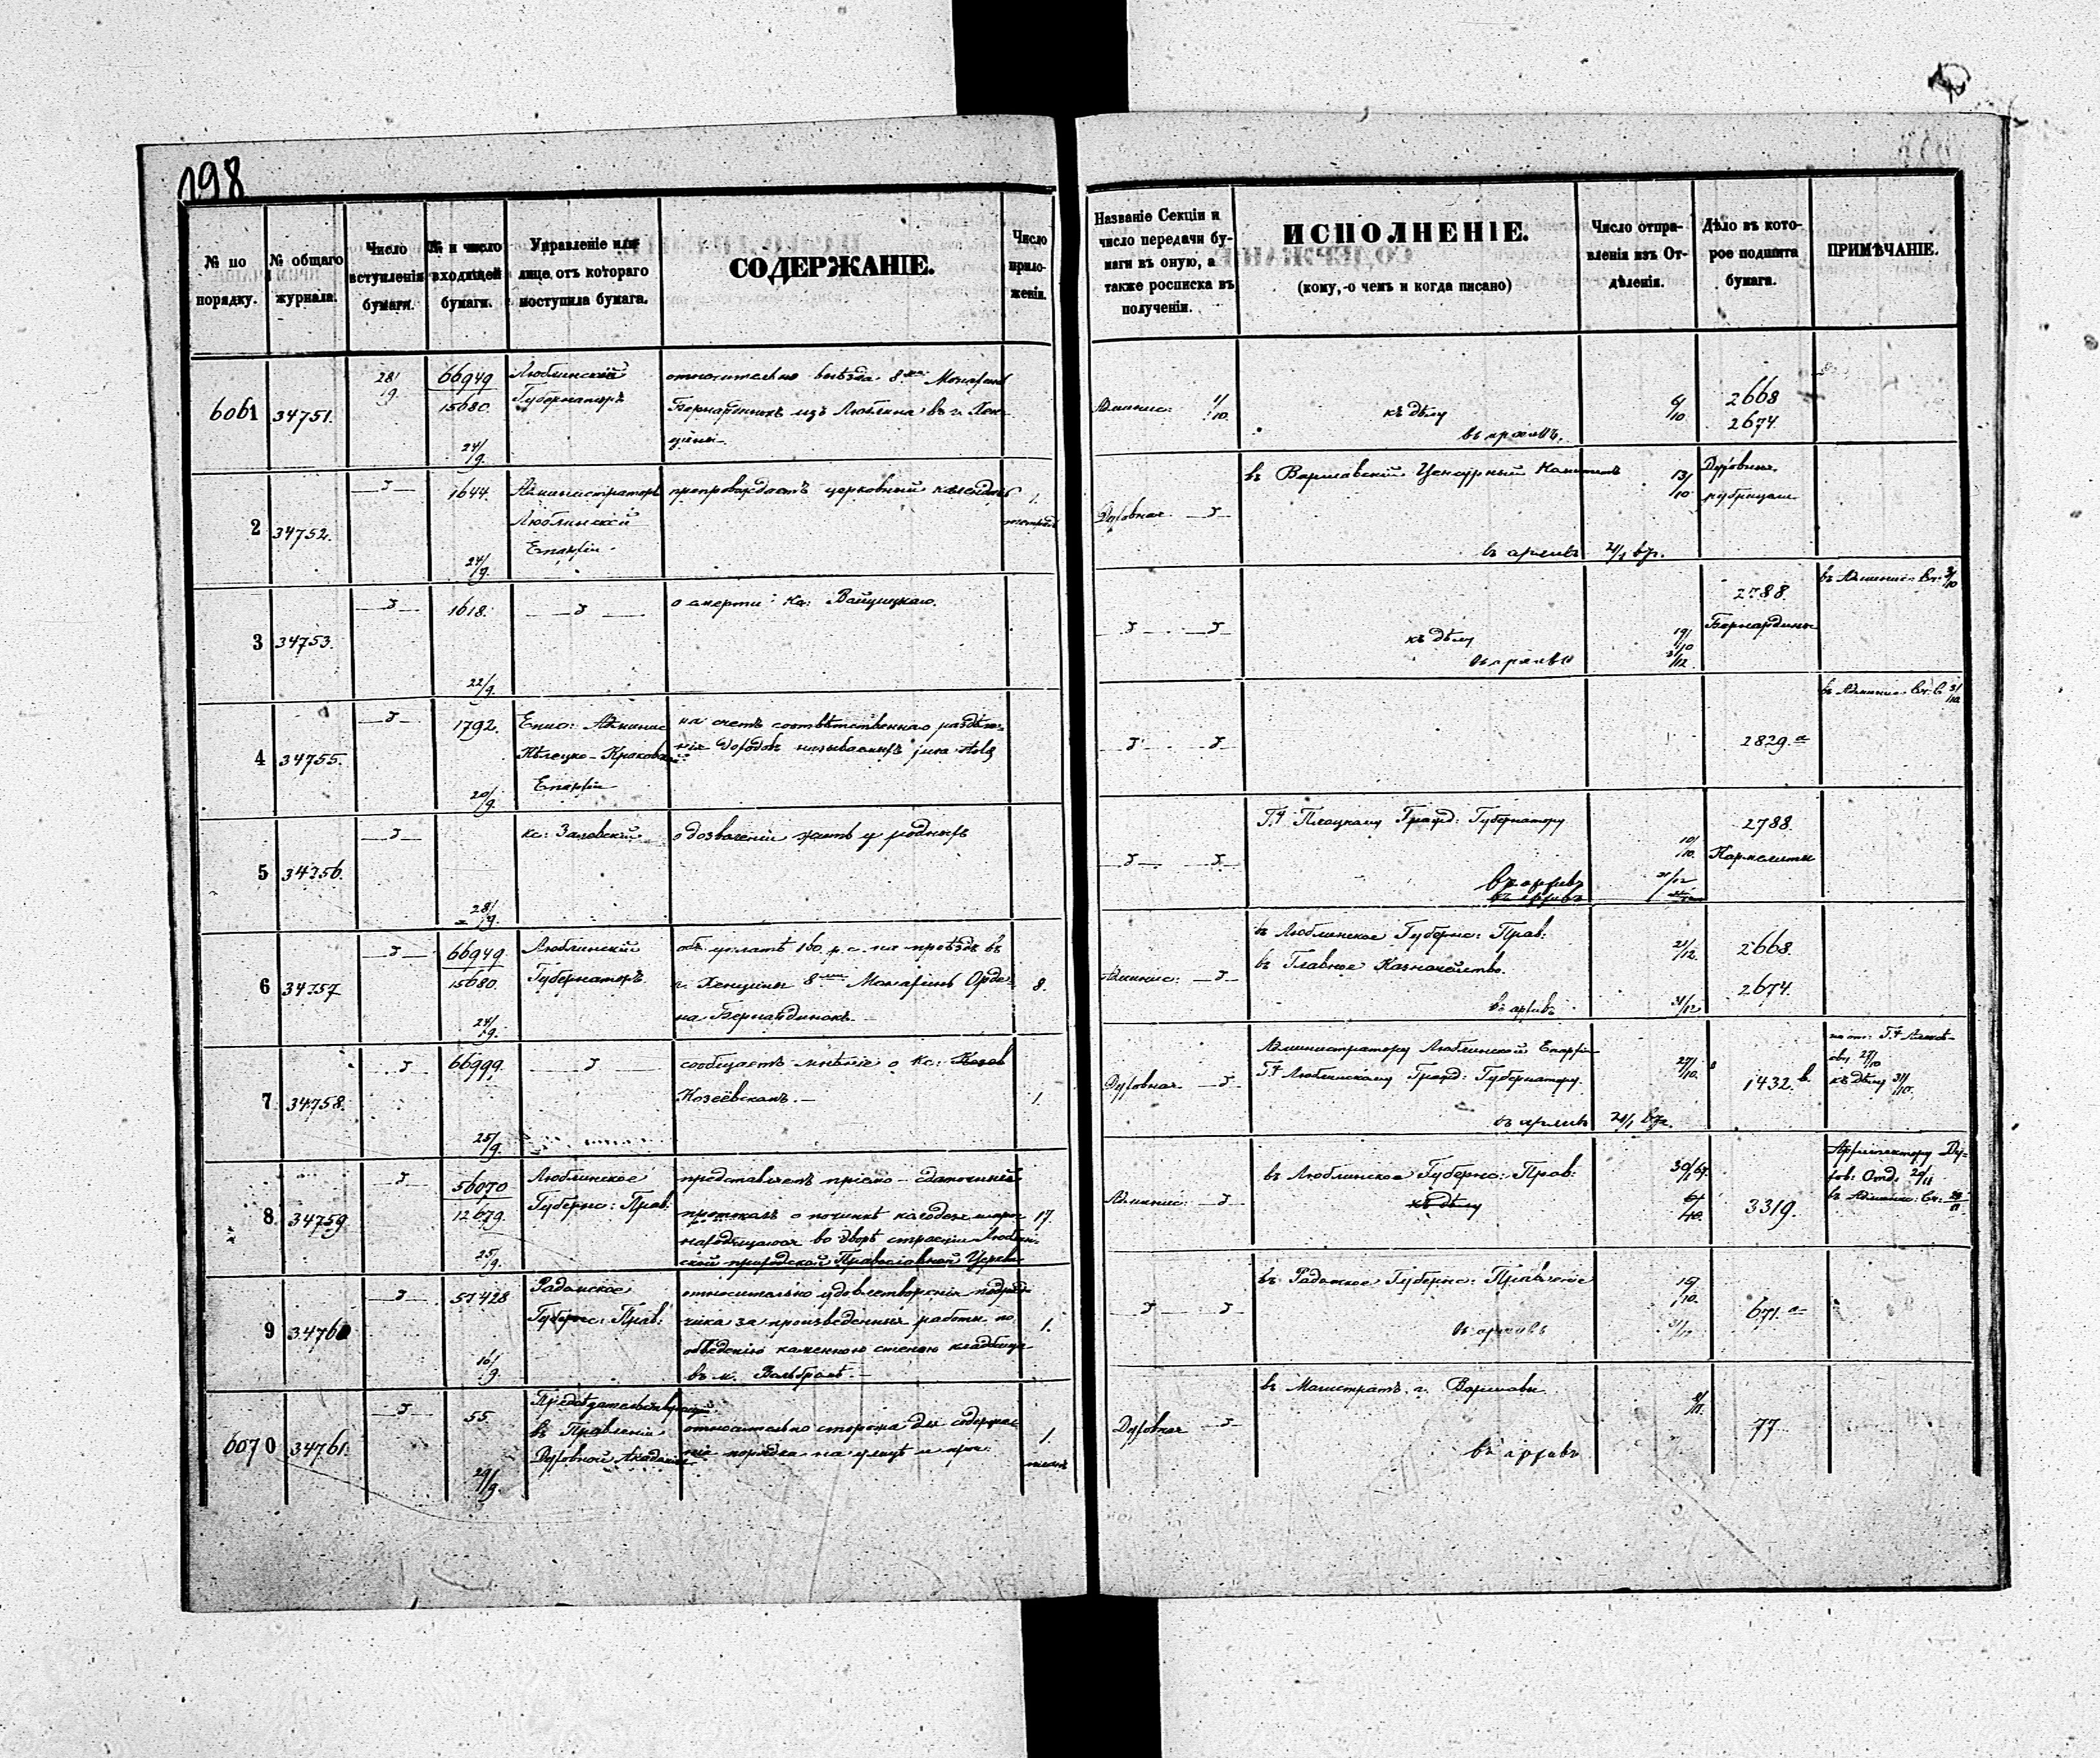 198
№ по порядку.
№ общаго журнала.
Число вступленія бумаги.
№ и число входящей бумаги.
Управленіе или лице, отъ котораго поступила бумага.
СОДЕРЖАНІЕ.
Число приложенія.
Названіе Секціи и число передачи бумаги въ оную, а также росписка въ полученіи.
ИСПОЛНЕНІЕ.
(кому, о чемъ и когда писано)
Число отправленія изъ Отдѣленія.
Дѣло въ которое подшита бумага.
ПРИМѢЧАНІЕ.
6061 34751. 28/9. 66949
15680. 24/9.
Люблинскій
Губернаторъ
относительно выѣзда 8ми Монахинь
Бернардинокъ изъ Люблина въ г.
Админис: 1/10.
къ дѣлу
въ архивъ.
6/10
2668
2674.
2 34752. 1644. 24/9.
Администраторъ
Люблинской
Епархіи.
препровождаетъ церковный календарь
1.
Духовная
въ Варшавскій Ценсурный Комитетъ
въ архивъ
13/10
21/1 67г.
Духовныя
рубрицели
3 34753. 1618. 22/9.
о смерти Кс: Войцицкаго.
къ дѣлу
въ архивъ
19/10
31/12
2788.
Бернардины
въ Админис: Сек: 3/10
4 34755. 1792. 20/9.
Епис: Админис
Кѣлецко-Краковской
Епархіи
на счетъ соотвѣтственнаго раздѣле-
нія доходовъ называемыхъ jura stolæ
2829.а
въ Админис: Сек: 3/10
5 34756. 28/9.
кс: Залевскій
о дозволеніи жить у родныхъ
Г. Плоцкому Гражд: Губернатору
въ архивъ
въ архивъ
10/10.
31/12
2788.
Кармелиты
6 34757 66949
15680. 24/9.
Люблинскій
Губернаторъ.
объ уплатѣ 160 р. с. на проѣздъ въ
г. Хенцины 8ми Монахинь Орде-
на Бернардинокъ.
8.
Админис:
въ Люблинское Губернс: Прав:
въ Главное Казначейство.
въ архивъ
21/12.
31/12
2668.
2674.
7 34758. 66999. 25/9.
сообщаетъ мнѣніе о Кс:
Козеёвскомъ.
1.
Духовная
Администратору Люблинской Епархіи
Г. Люблинскому Гражд: Губернатору.
въ архивъ
27/10.
21/1 67г.
1432.в.
къ дѣлу 31/10.
8. 34759. 56070
12679. 25/9.
Люблинское
Губернс: Прав.
представляетъ пріемо-сдаточный
протоколъ о починкѣ колодезя
находящагося во дворѣ строенія Люблин-
ской приходской Православной Церкви
17.
Админис:
въ Люблинское Губернс: Прав:
къ дѣлу
3319.
Архитектору Ду-
хов: Отд. 20/11
въ Админис: Сек:
9 34760 57428 16/9
Радомское
Губернс: Прав:
относительно удовлетворенія подряд-
чика за произведенныя работы по
обведенію каменною стеною кладбища
въ м. Вольбромѣ.
1.
въ Радомское Губернс: Правленіе
въ архивъ
19/10.
31/12
671.а
6070 34761. 55. 29/9.
Предсѣдательствующій
въ Правленіи
Духовной Академіи
относительно сторожа для содержа-
нія порядка на улицѣ и проч.
1.
Духовная
въ Магистратъ г. Варшавы
въ архивъ
77